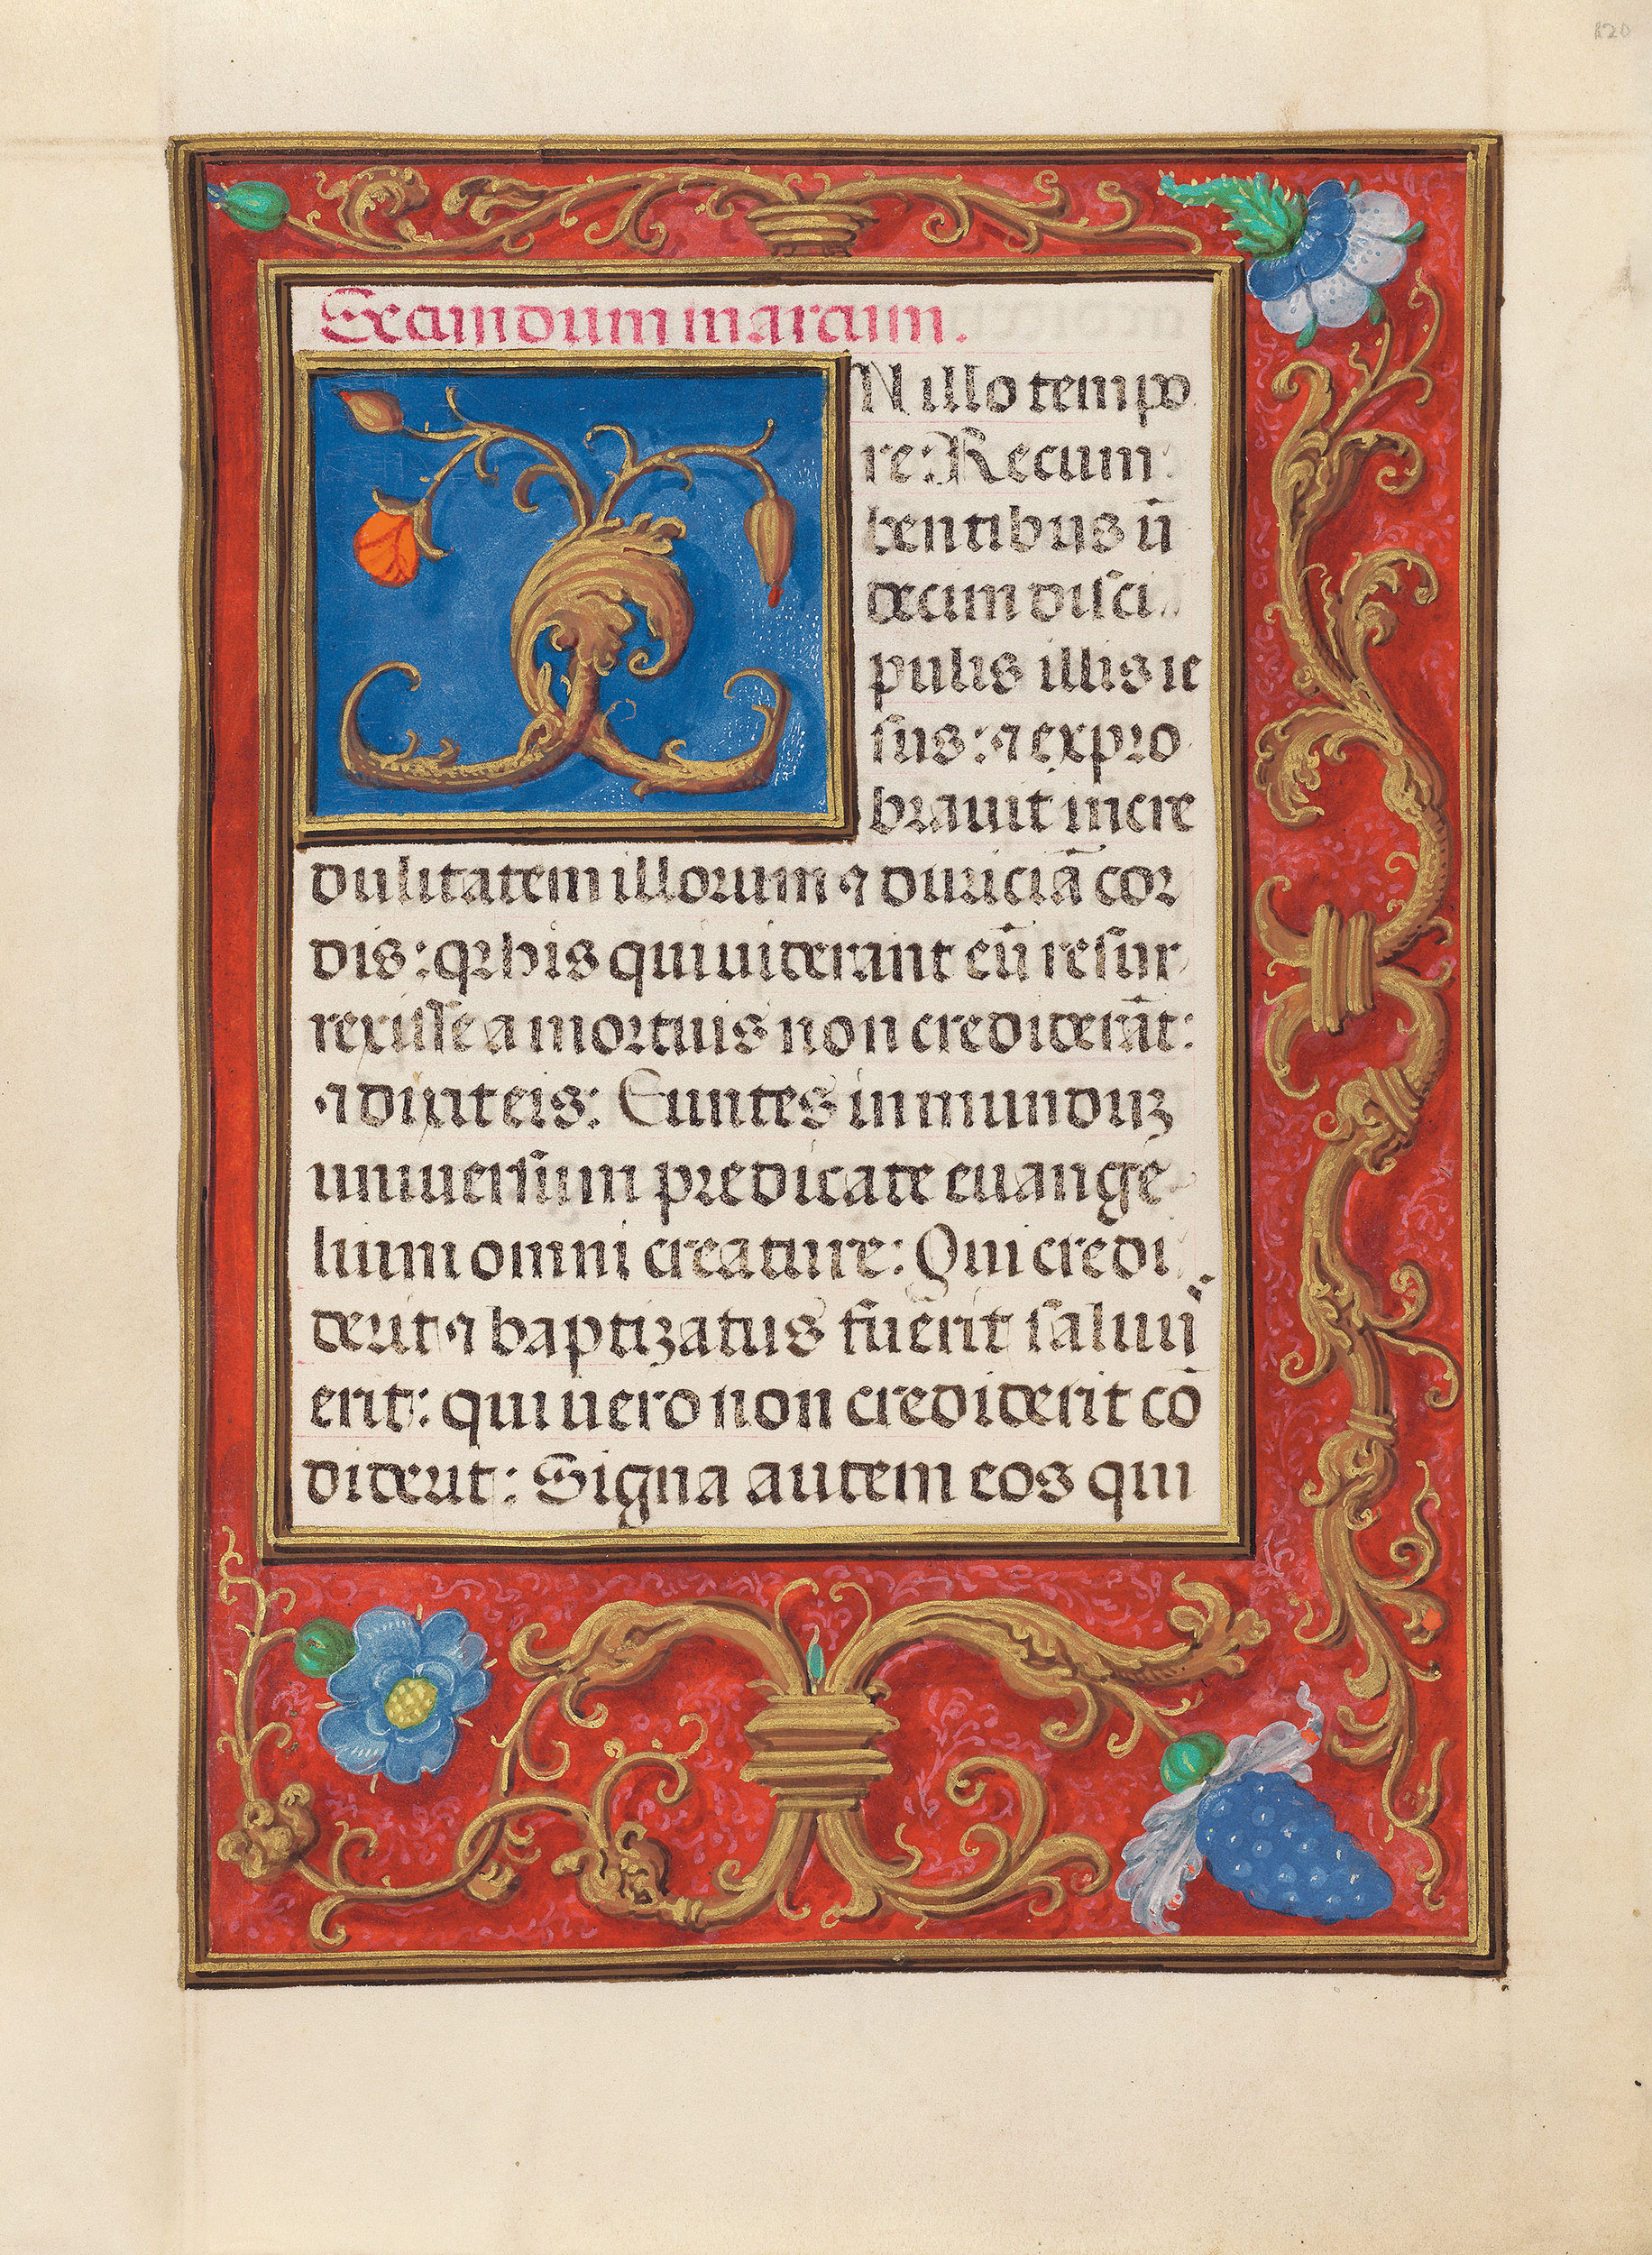 Secundum marcum.
IN illo tempo
re: Recum
bentibus ū
decim disci
pulis illis ie
sus: ⁊ expro
brauit incre
dulitatem illorum ⁊ duriciā cor
dis: qꝛ his qui uiderant eū resur
rexisse a mortuis non crediderāt:
⁊ dixit eis: Euntes in munduꝫ
uniuersum predicate euange
lium omni creature: Qui credi
derit ⁊ baptizatus fuerit saluuˀ
erit: qui uero non crediderit cō
diderit: Signa autem eos qui